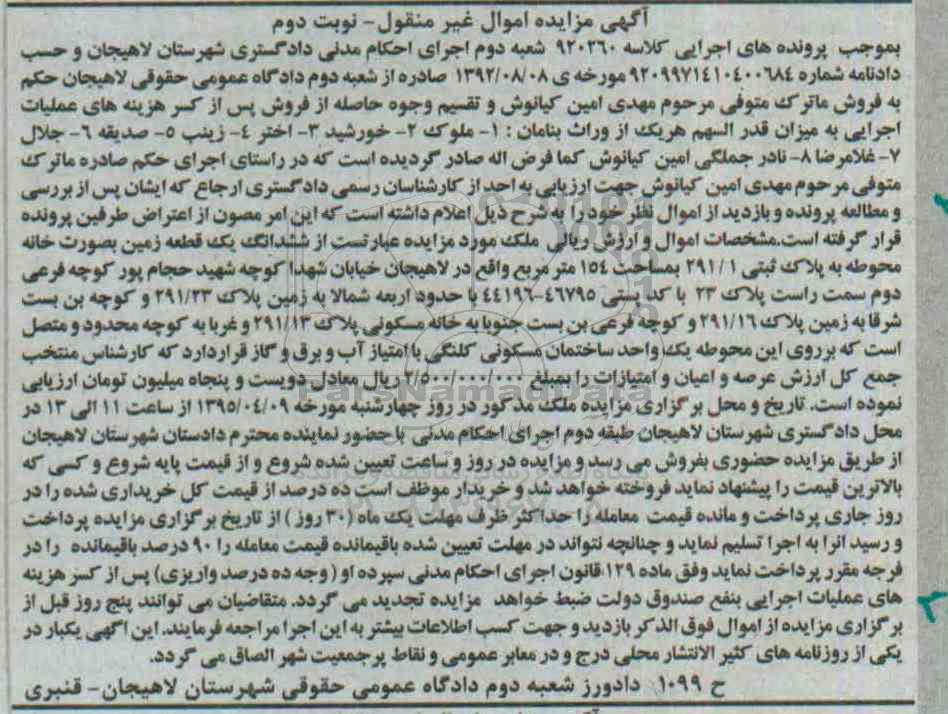 آگهی مزایده اموال غیر منقول- نوبت دوم
بموجب پرونده های اجرایی کلاسه ۹۲۰۲۶۰ شعبه دوم اجرای احکام مدنی دادگستری شهرستان لاهیجان و حسب
دادنامه شماره ۹۲۰۹۹۷۱۴۱۰۴۰۰۶۸۴ مورخه ی ۱۳۹۲/۰۸/۰۸ صادره از شعبه دوم دادگاه عمومی حقوقی لاهیجان حکم
به فروش ماترک متوفی مرحوم مهدی امین کیانوش و تقسیم وجوه حاصله از فروش پس از کسر هزینه های عملیات
اجرایی به میزان قدر السهم هریک از وراث بنامان : ۱- ملوک ۲- خورشید ۳- اختر ۴- زینب ۵- صدیقه ۶- جلال
۷- غلامرضا ۸- نادر جملگی امین کیانوش کما فرض اله صادر گردیده است که در راستای اجرای حکم صادره ماترک
متوفی مرحوم مهدی امین کیانوش جهت ارزیابی به احد از کارشناسان رسمی دادگستری ارجاع که ایشان پس از بررسی
و مطالعه پرونده و بازدید از اموال نظر خود را به شرح ذیل اعلام داشته است که این امر مصون از اعتراض طرفین پرونده
قرار گرفته است.مشخصات اموال و ارزش ریالی ملک مورد مزایده عبارتست از ششدانگ یک قطعه زمین بصورت خانه
محوطه به پلاک ثبتی ۲۹۱/۱ بمساحت ۱۵۴ متر مربع واقع در لاهیجان خیابان شهدا کوچه شهید حجام پور کوچه فرعی
دوم سمت راست پلاک ۲۳ با کد پستی ۴۶۷۹۵-۴۴۱۹۶ با حدود اربعه شمالا به زمین پلاک ۲۹۱/۲۳ و کوچه بن بست
شرقا به زمین پلاک ۲۹۱/۱۶ و کوچه فرعی بن بست جنوبا به خانه مسکونی پلاک ۲۹۱/۱۳ و غربا به کوچه محدود و متصل
است که برروی این محوطه یک واحد ساختمان مسکونی کلنگی با امتیاز آب و برق و گاز قراردارد که کارشناس منتخب
جمع کل ارزش عرصه و اعیان و امتیازات را بمبلغ ۲/۵۰۰/۰۰۰/۰۰۰ ریال معادل دویست و پنجاه میلیون تومان ارزیابی
نموده است. تاریخ و محل برگزاری مزایده ملک مذکور در روز چهارشنبه مورخه ۱۳۹۵/۰۴/۰۹ از ساعت ۱۱ الی ۱۳ در
محل دادگستری شهرستان لاهیجان طبقه دوم اجرای احکام مدنی با حضور نماینده محترم دادستان شهرستان لاهیجان
از طریق مزایده حضوری بفروش می رسد و مزایده در روز و ساعت تعیین شده شروع و از قیمت پایه شروع و کسی که
بالاترین قیمت را پیشنهاد نماید فروخته خواهد شد و خریدار موظف است ده درصد از قیمت کل خریداری شده را در
روز جاری پرداخت و مانده قیمت معامله را حداکثر ظرف مهلت یک ماه (۳۰ روز) از تاریخ برگزاری مزایده پرداخت
و رسید انرا به اجرا تسلیم نماید و چنانچه نتواند در مهلت تعیین شده باقیمانده قیمت معامله را ۹۰ درصد باقیمانده را در
فرجه مقرر پرداخت نماید وفق ماده ۱۲۹ قانون اجرای احکام مدنی سپرده او (وجه ده درصد واریزی) پس از کسر هزینه
های عملیات اجرایی بنفع صندوق دولت ضبط خواهد مزایده تجدید می گردد. متقاضیان می توانند پنج روز قبل از
برگزاری مزایده از اموال فوق الذکر بازدید و جهت کسب اطلاعات بیشتر به این اجرا مراجعه فرمایند. این آگهی یکبار در
یکی از روزنامه های کثیر الانتشار محلی درج و در معابر عمومی و نقاط پرجمعیت شهر الصاق می گردد.
ح ۱۰۹۹ دادورز شعبه دوم دادگاه عمومی حقوقی شهرستان لاهیجان- قنبری
ParsNamadData